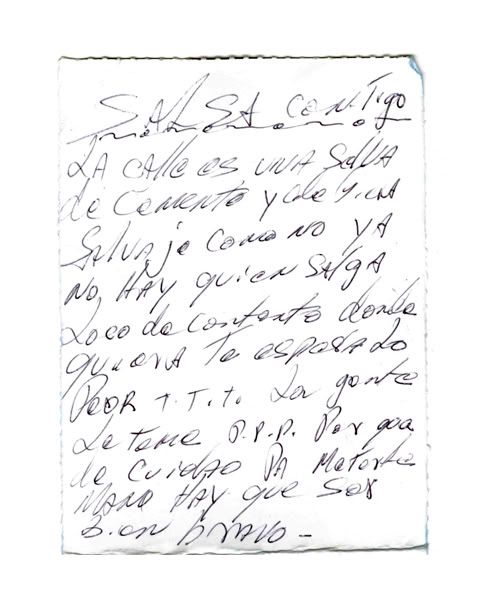 SALSA CONTigo
LA CALLE es UNA SelVA
de Cemento y de FierA
SalvAje Como NO YA
NO HAY quien SAlgA
Loco de contento donde
quierA Te esperA Lo
PeOR T.T.T. La gente
Le Teme P.P.P. Por que
de Cuidao PA MATArte
MANO HAY que SeR
Bien bravo -